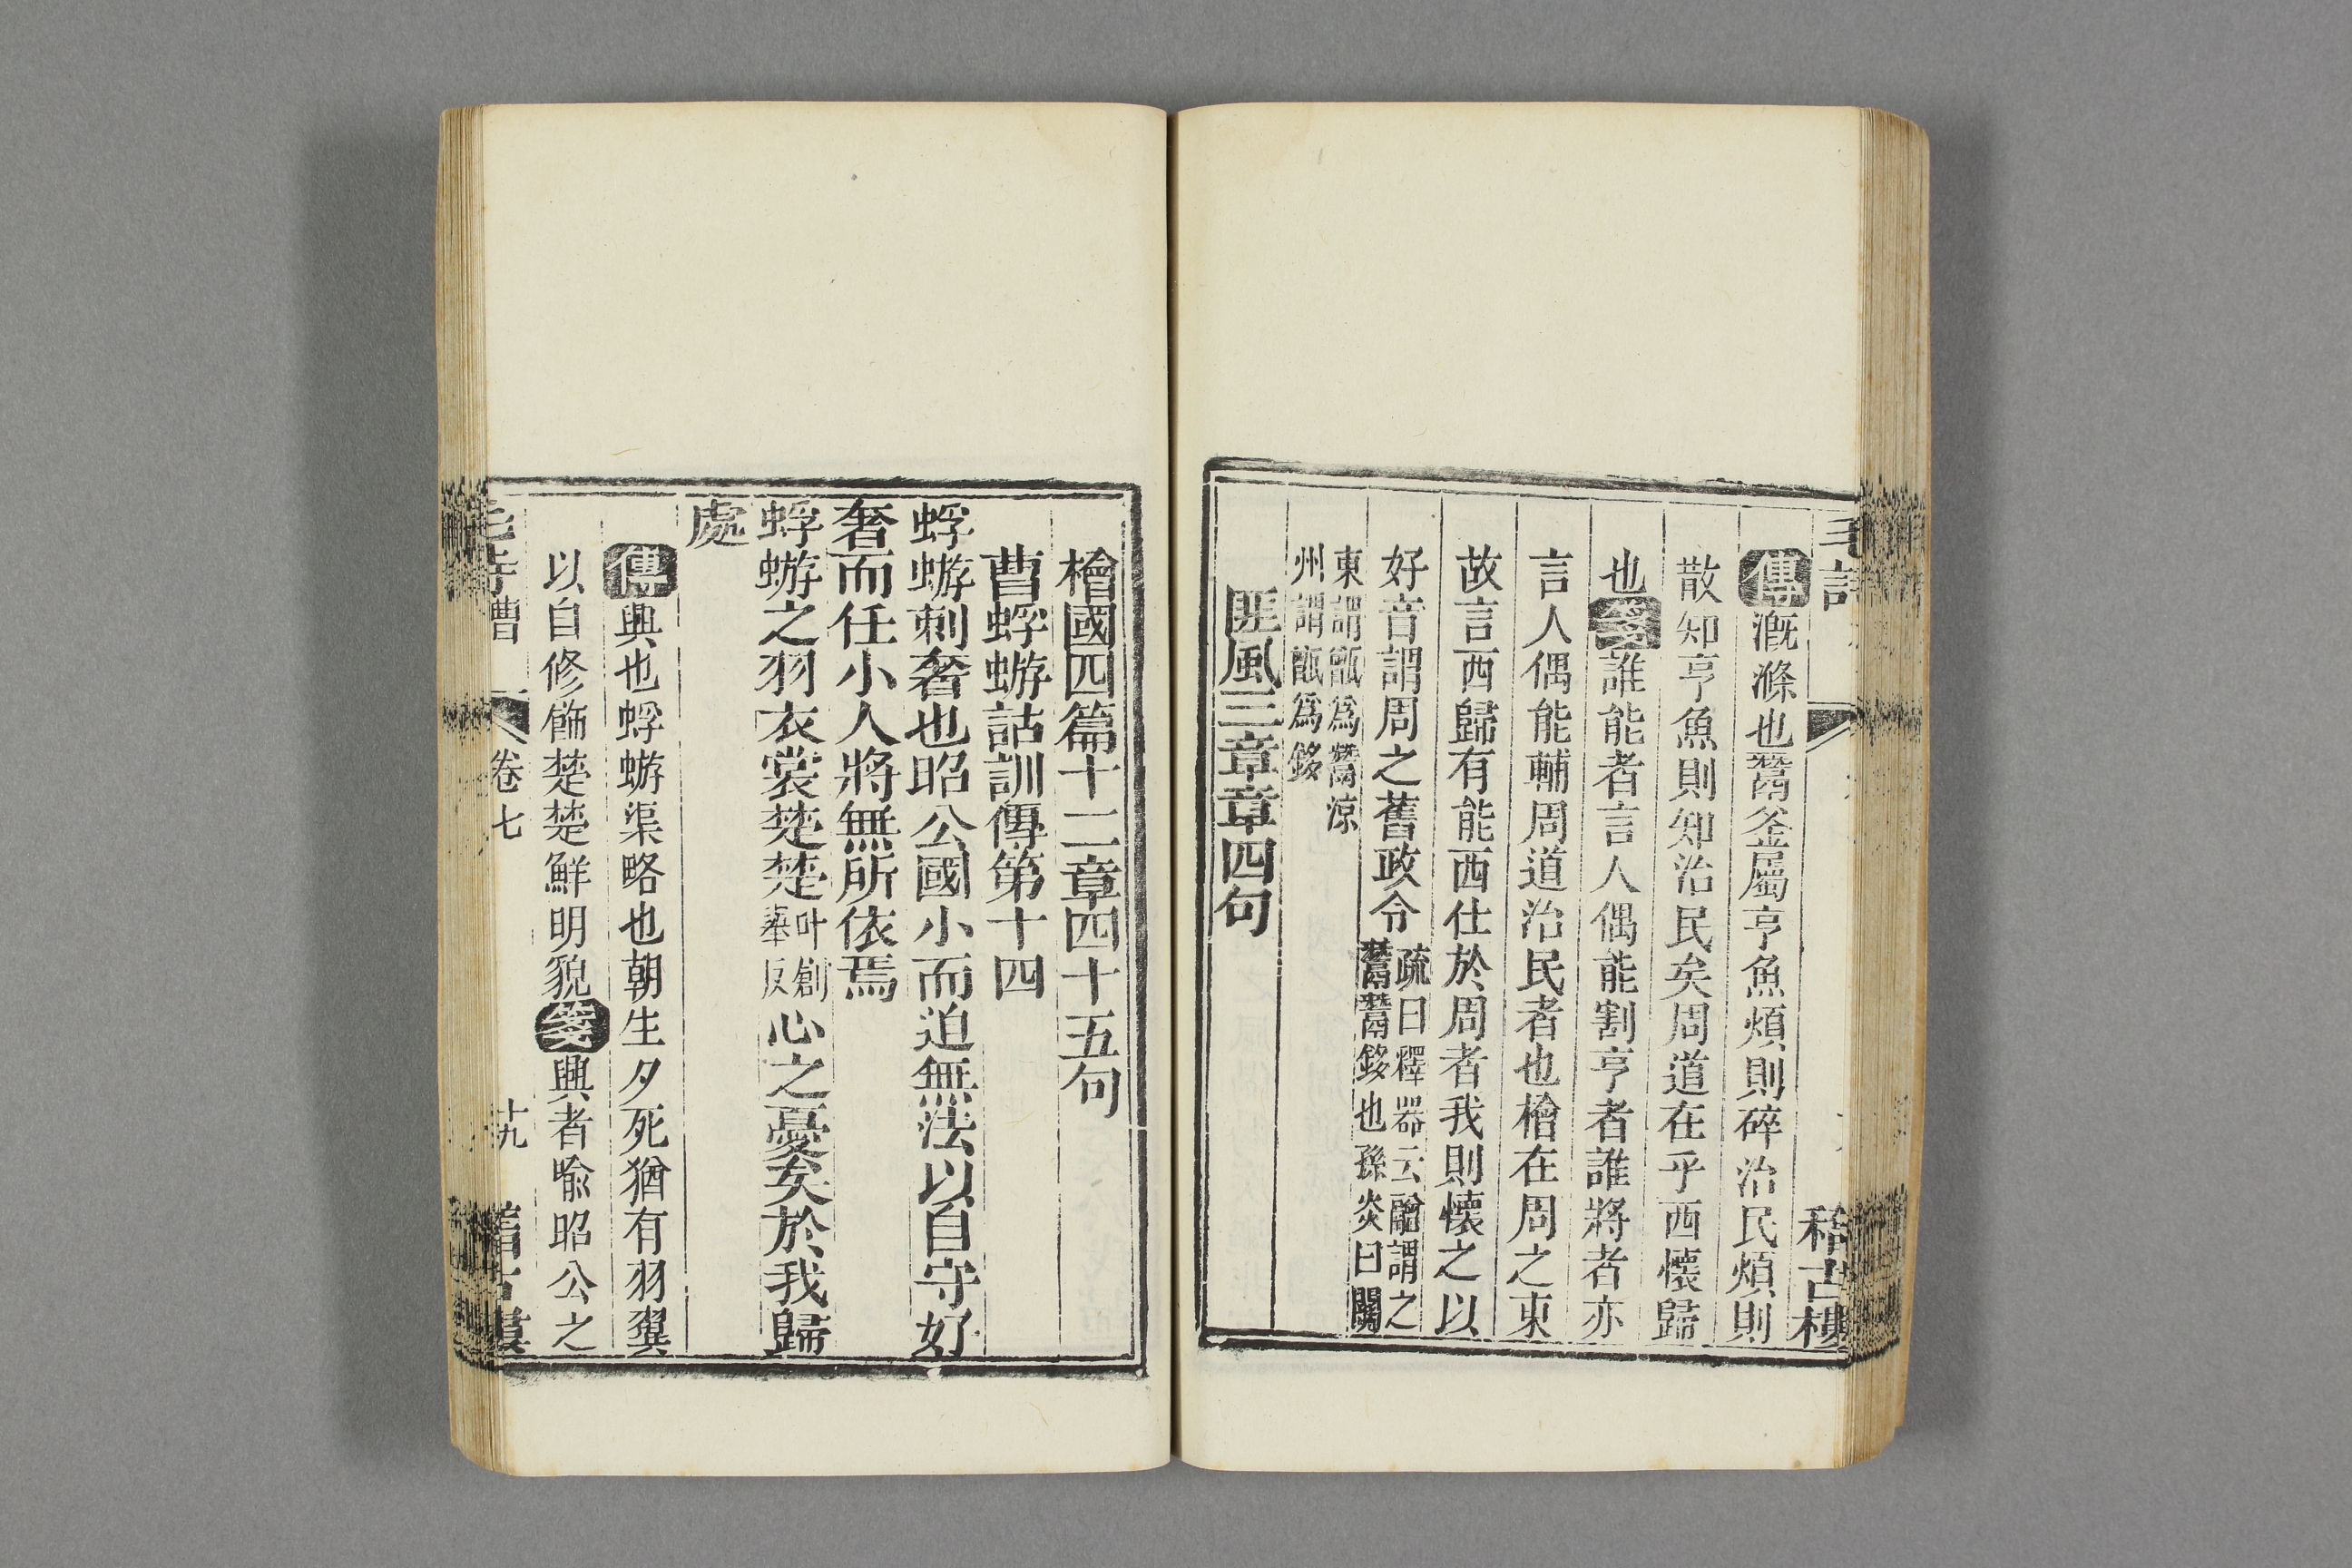 傳漑滌也鬵釜屬亨魚煩則碎治民煩則
散知亨魚則知治民矣周道在乎西懷歸
也箋誰能者言人偶能割亨者誰將者亦
言人偶能輔周道治民者也檜在周之東
故言西歸有能西仕於周者我則懷之以
好音謂周之舊政令疏曰釋器云䰝謂之
鬵鬵鉹也孫炎曰關
東謂甑爲鬵涼
州謂甑爲鉹
匪風三章章四句
檜國四篇十二章四十五句
曹蜉蝣詁訓傳第十四
蜉蝣刺奢也昭公國小而迫無法以自守好
奢而任小人將無所依焉
蜉蝣之羽衣裳楚楚叶創
舉反心之憂矣於我歸
處
傳興也蜉蝣渠略也朝生夕死猶有羽翼
以自修飾楚楚鮮明貌箋興者喻昭公之
曹
卷七
十九